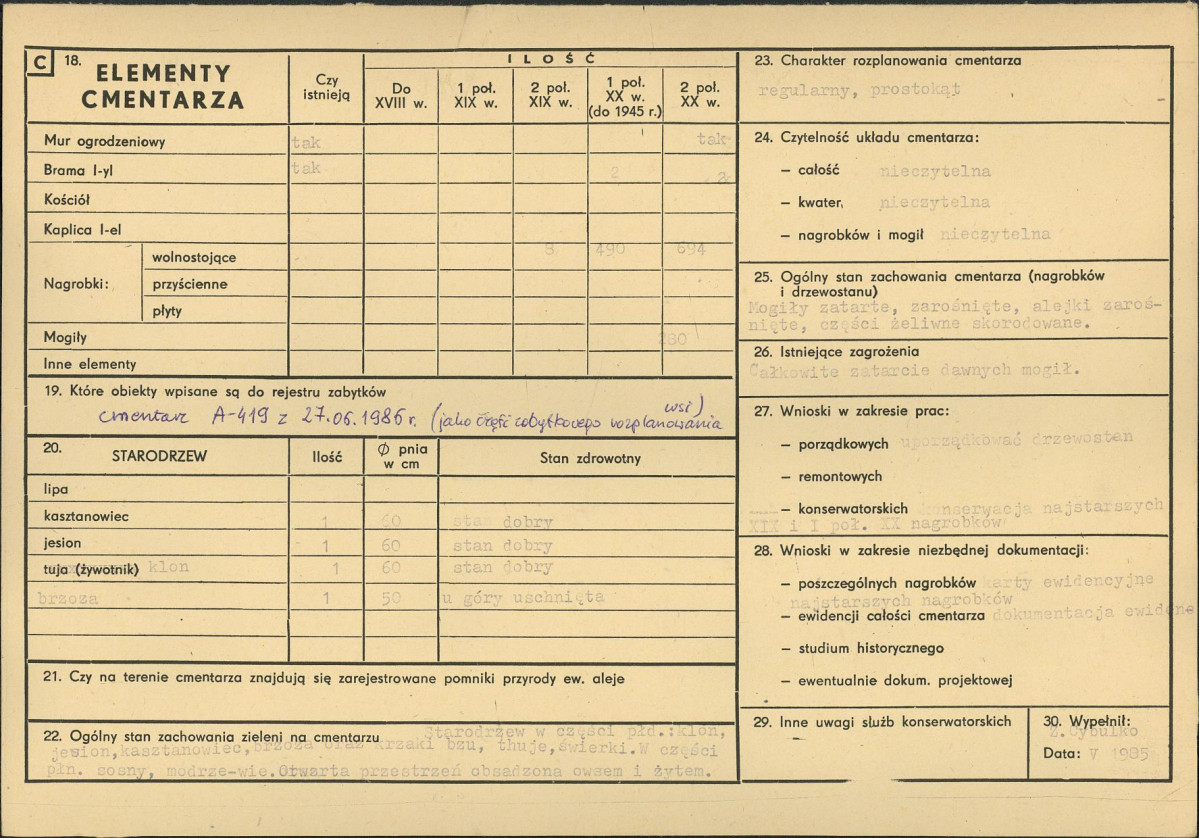 C 18. ELEMENTY CMENTARZA
Czy istnieją
I L O Ś Ć
Do XVIII w.
1 poł. XIX w.
2 poł. XIX w.
1 poł. XX w. (do 1945 r.)
2 poł. XX w.
Mur ogrodzeniowy tak tak
Brama I-yl tak 2 2
Kościół
Kaplica I-el
Nagrobki:
wolnostojące 8 490 694
przyścienne
płyty
Mogiły 280
Inne elementy
19. Które obiekty wpisane są do rejestru zabytków
cmentarz A-419 z 27.06.1986 r. (jako część zabytkowego rozplanowania wsi)
20. STARODRZEW Ilość Ø pnia w cm Stan zdrowotny
lipa
kasztanowiec 1 60 stan dobry
jesion 1 60 stan dobry
tuja (żywotnik) klon 1 60 stan dobry
brzoza 1 50 u góry uschnięta
21. Czy na terenie cmentarza znajdują się zarejestrowane pomniki przyrody ew. aleje
22. Ogólny stan zachowania zieleni na cmentarzu Starodrzew w części płd.:klon,
jesion,kasztanowiec,brzoza oraz krzaki bzu, thuje,świerki.W części
płn. sosny, modrze-wie.Otwarta przestrzeń obsadzona owsem i żytem.
23. Charakter rozplanowania cmentarza
regularny, prostokąt
24. Czytelność układu cmentarza:
– całość nieczytelna
– kwater, nieczytelna
– nagrobków i mogił nieczytelna
25. Ogólny stan zachowania cmentarza (nagrobków
i drzewostanu)
Mogiły zatarte, zarośnięte, alejki zaroś-
nięte, części żeliwne skorodowane.
26. Istniejące zagrożenia
Całkowite zatarcie dawnych mogił.
27. Wnioski w zakresie prac:
– porządkowych uporządkować drzewostan
– remontowych
– konserwatorskich konserwacja najstarszych
XIX i I poł. XX nagrobków
28. Wnioski w zakresie niezbędnej dokumentacji:
– poszczególnych nagrobków karty ewidencyjne
najstarszych nagrobków
– ewidencji całości cmentarza dokumentacja ewidenc
– studium historycznego
– ewentualnie dokum. projektowej
29. Inne uwagi służb konserwatorskich
30. Wypełnił:
Z.Cybulko
Data: V 1985